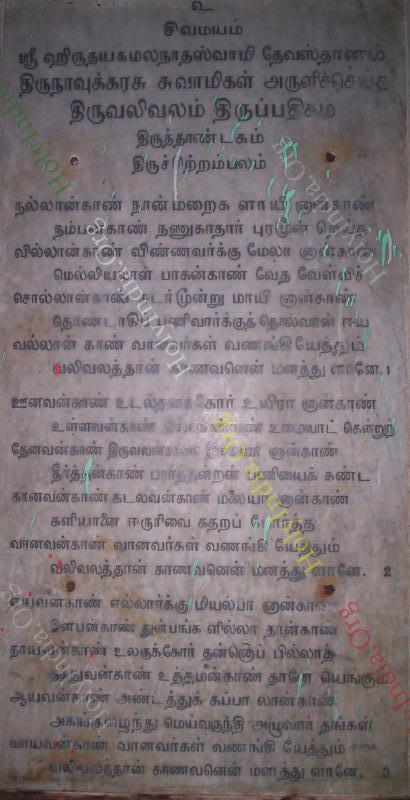 உ
சிவமயம்
ஸ்ரீ ஹிருதயகமலநாதஸ்வாமி தேவஸ்தானம்
திருநாவுக்கரசு சுவாமிகள் அருளிச்செய்த
திருவலிவலம் திருப்பதிகம்
திருத்தாண்டகம்
திருச்சிற்றம்பலம்
நல்லான்காண் நான்மறைக ளாயி னான்காண்
நம்பன்காண் நணுகாதார் புரமூன் றெய்த
வில்லான்காண் விண்ணவர்க்கு மேலா னான்காண்
மெல்லியலாள் பாகன்காண் வேத வேள்விச்
சொல்லான்காண் சுடர்மூன்று மாயி னான்காண்
தொண்டாகிப் பணிவார்க்குத் தொல்வான் ஈய
வல்லான் காண் வானவர்கள் வணங்கியேத்தும்
வலிவலத்தான் காணவனென் மனத்து ளானே. 1
ஊனவன்காண் உடல்தனக்கோர் உயிரா னான்காண்
உள்ளவன்காண் இல்லவன்காண் உமையாட் கென்றும்
தேனவன்காண் திருவவன்காண் னான்காண்
தீர்த்தன்காண் பார்த்தன்றன் பணியைக் கண்ட
கானவன்காண் கடலவன்காண் மலையா னான்காண்
களியானை ஈருரிவை கதறப் போர்த்த
வானவன்காண் வானவர்கள் வணங்கி யேத்தும்
வலிவலத்தான் காணவனென் மனத்து ளானே. 2
ஏயவன்காண் எல்லார்க்கு மியல்பா னான்காண்
இன்பன்காண் துன்பங்க ளில்லா தான்காண்
தாயவன்காண் உலகுக்கோர் தன்னொப் பில்லாத்
தத்துவன்காண் உத்தமன்காண் தானே யெங்கும்
ஆயவன்காண் அண்டத்துக் கப்பா லான்காண்
அகங்குழைந்து மெய்வருந்தி அழுவார் தங்கள்
வாயவன்காண் வானவர்கள் வணங்கி யேத்தும்
வலிவலத்தான் காணவனென் மனத்து ளானே. 3
HolyIndia.Org
HolyIndia.Org
HolyIndia.Org
HolyIndia.Org
HolyIndia.Org
India.Org